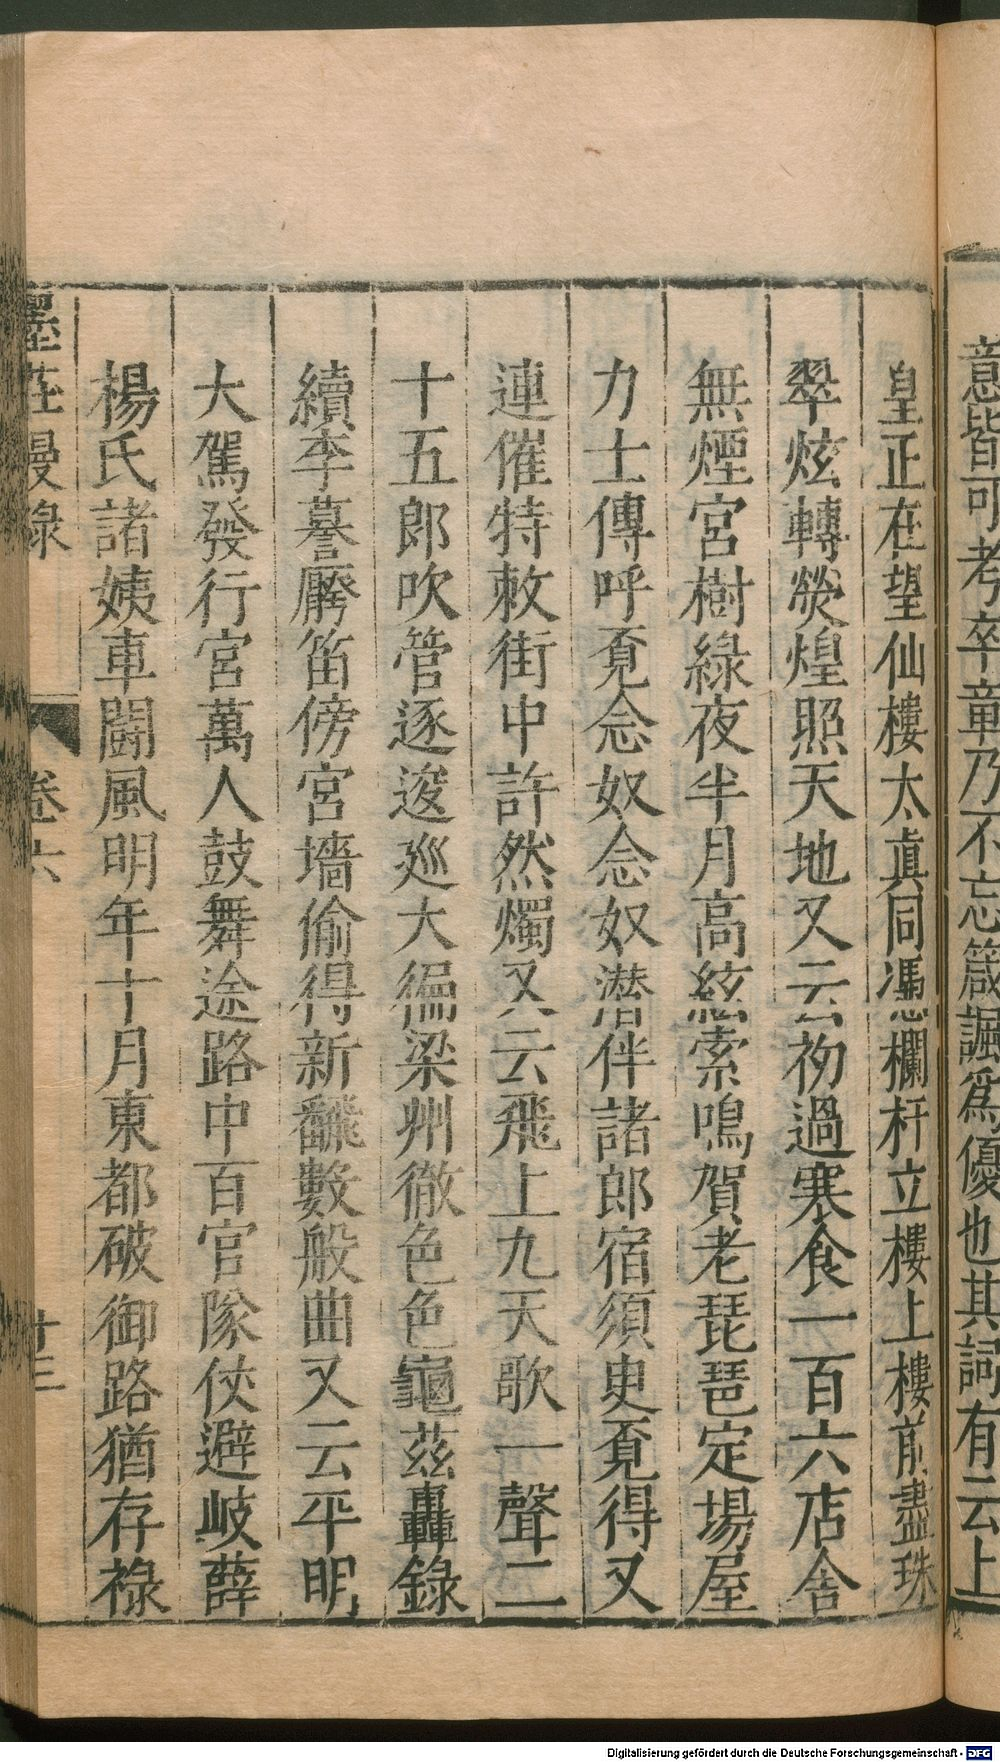 意皆可考卒章乃不忘箴諷爲優也其詞有云上
皇正在望仙樓太眞同憑欄杆立樓上樓前盡珠
翠炫轉熒煌照天地又云初過寒食一百六店舍
無煙宮樹綠夜半月高絃索鳴賀老琵琶定場屋
力士傳呼覓念奴念奴潛伴諸郎宿須吏覓得又
連催特敕街中許然燭又云飛上九天歌一聲二
十五郎吹管逐逡廵大徧梁州徹色色龜茲轟錄
續李謩擪笛傍宮墻偷得新飜數般曲又云平明
大駕發行宮萬人鼓舞途路中百官隊伏避岐薛
楊氏諸姨車闘風明年十月東都破御路猶存祿
墨莊漫錄 卷六 廿三
Digitalisierung gefördert durch die Deutsche Forschungsgemeinschaft - DFG